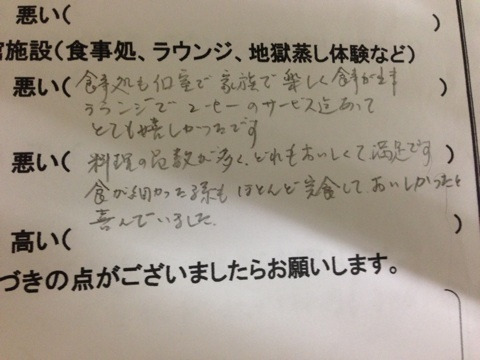 悪い( )
館施設(食事処、ラウンジ、地獄蒸し体験など)
悪い(食事処も個室で家族で楽しく食事が出来
ラウンジでコーヒーのサービス迄あって
とても嬉しかったです )
悪い(料理の品数が多く、どれもおいしくて満足です
食が細かった孫もほとんど完食して、おいしかったと
喜んでいました。 )
高い( )
づきの点がございましたらお願いします。